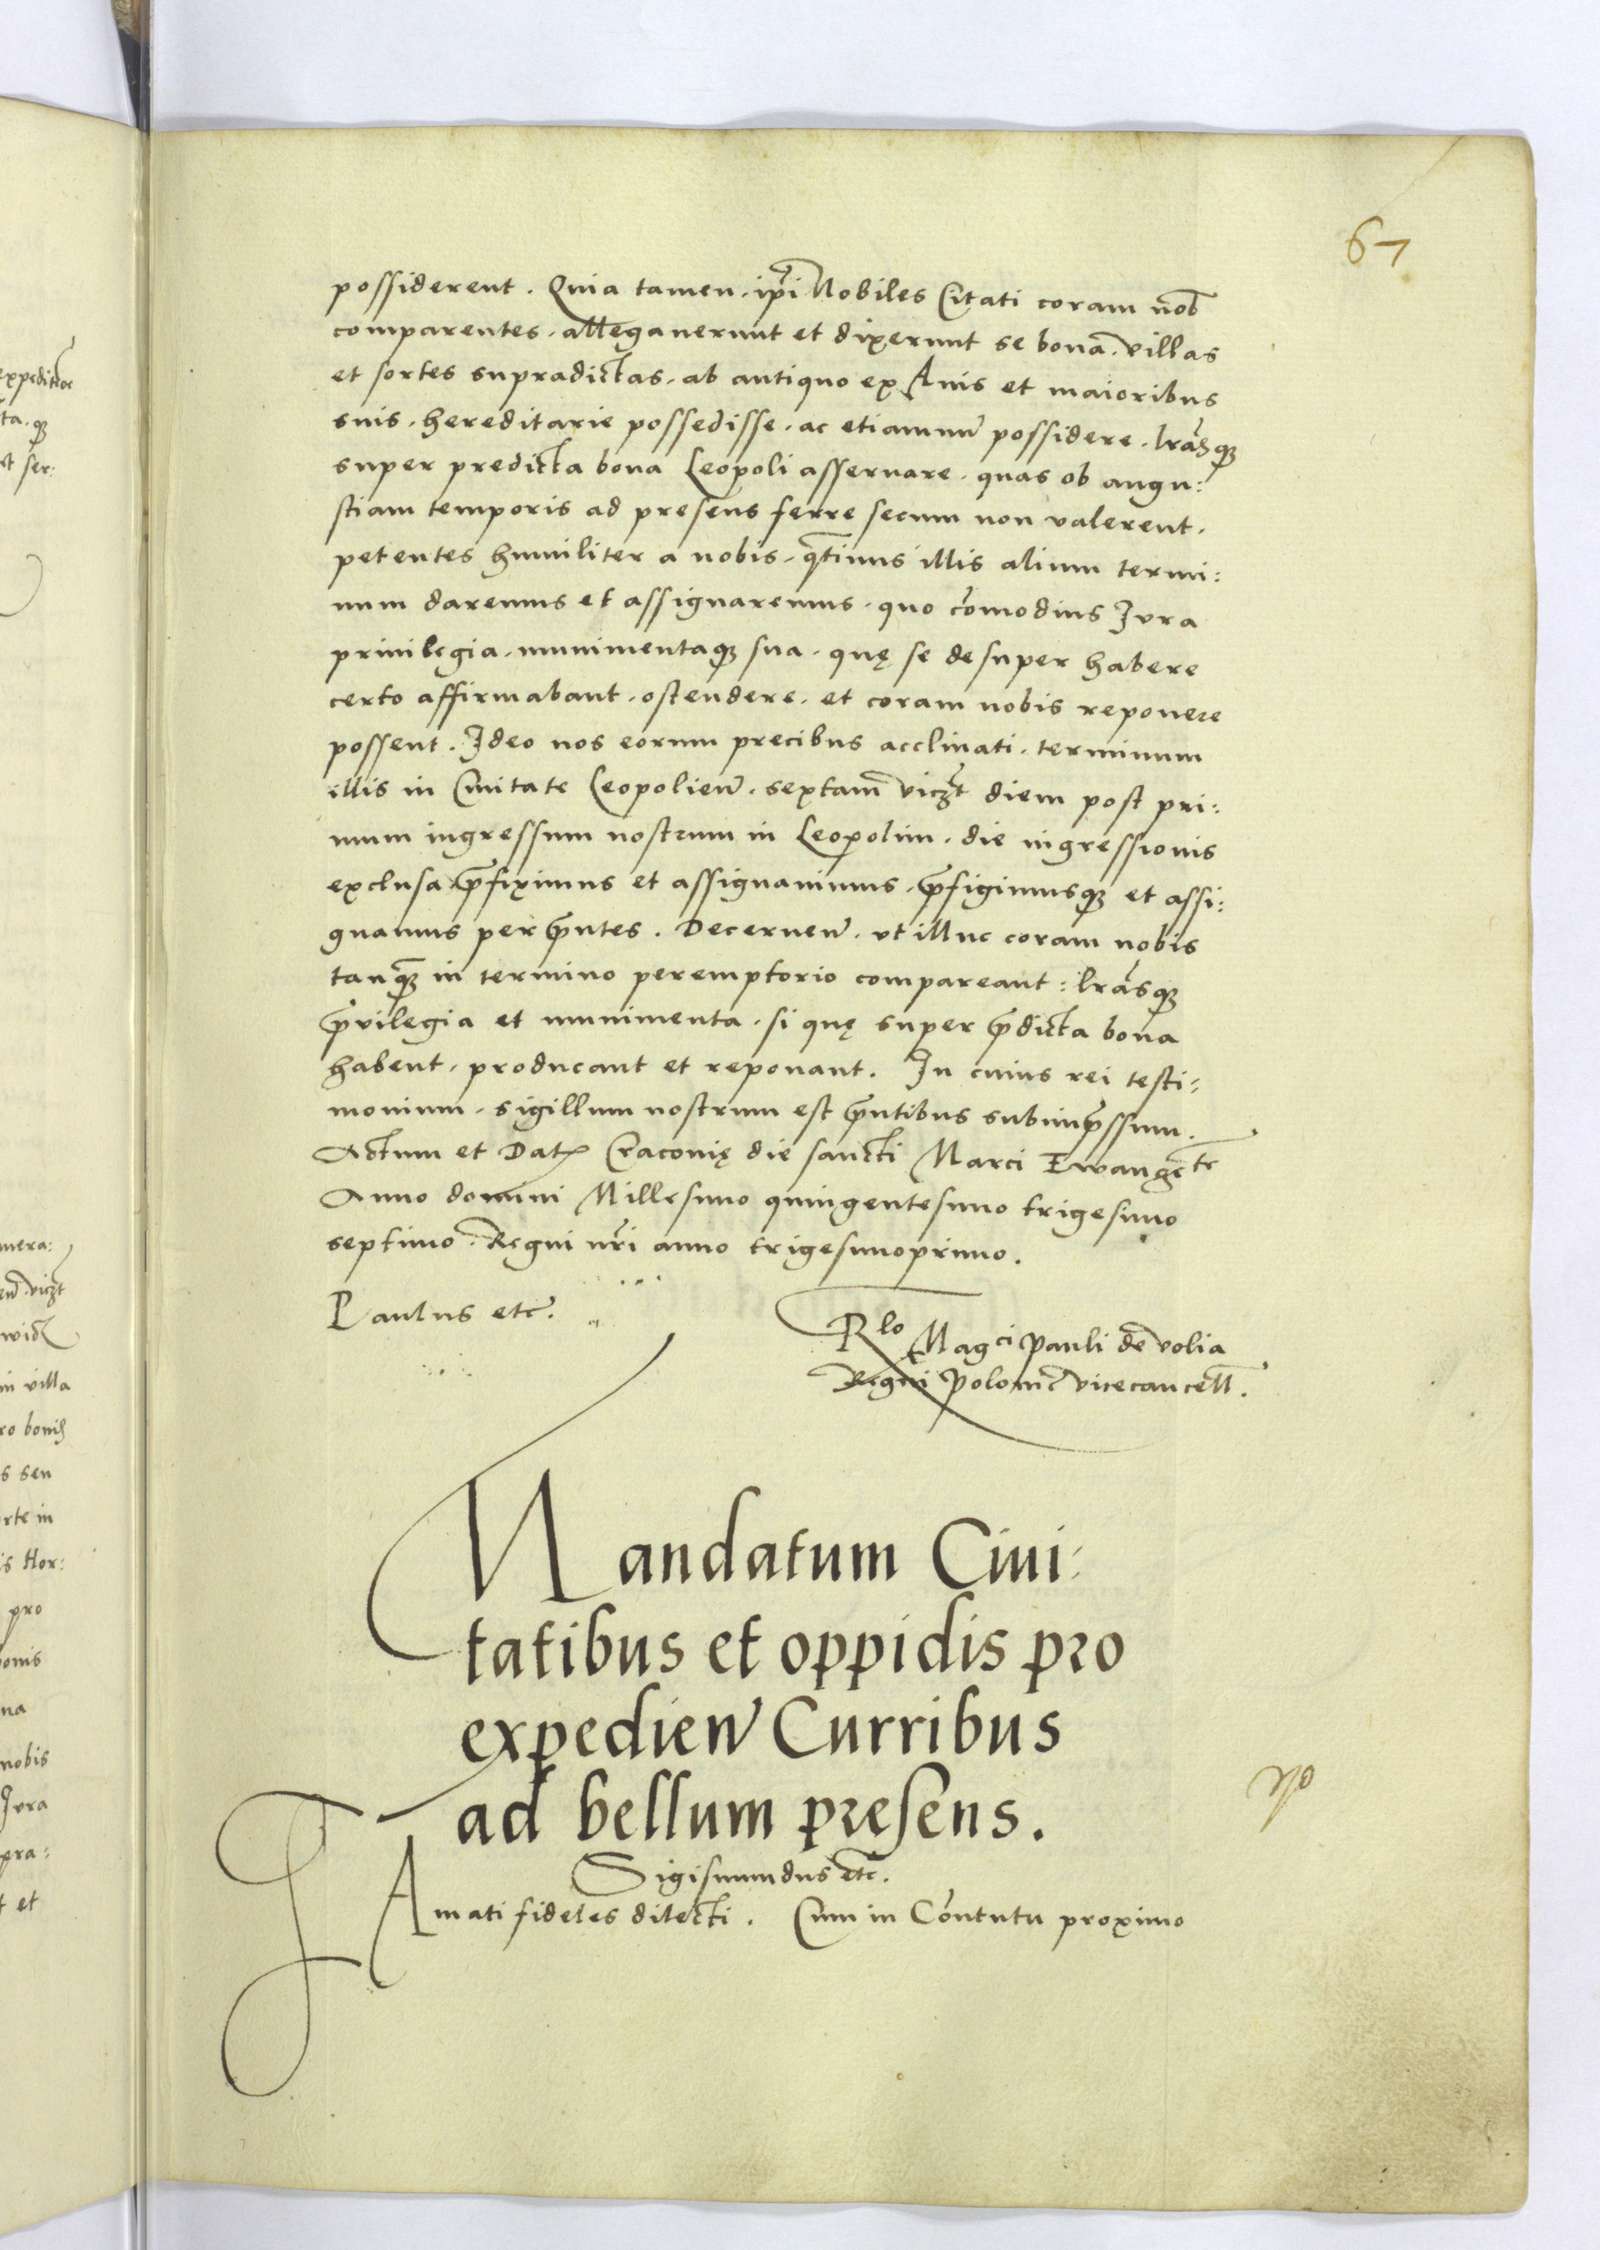 67
possiderent. Quia tamen. ip̃i Nobiles Citati coram nob̃
comparentes. allegauerunt et dixerunt se bona. villas
et sortes supradictas. ab antiquo ex Auis et maioribus
suis. hereditarie possedisse. ac etiamnũ possidere. lr̃asq3
super predicta bona Leopoli asseruare. quas ob angu:
stiam temporis ad presens ferre secum non valerent.
petentes humiliter a nobis. q̃tinus illis alium termi:
num daremus et assignaremus. quo cõmodius Jura
priuilegia. munimentaq3 sua. quę se desuper habere
certo affirmabant. ostendere. et coram nobis reponere
possent. Ideo nos eorum precibus acclinati. terminum
illis in Ciuitate Leopolieñ. sextam vicz̃t diem post pri:
mum ingressum nostrum in Leopolim. die ingressionis
exclusa p̃fiximus et assignauimus. p̃figimusq3 et assi:
gnamus per p̃ntes. Decerneñ. vt illuc coram nobis
tanq̃3 in termino peremptorio compareant: lr̃asq3
p̃rilegia et munimenta. si quę super p̃dicta bona
habent. producant et reponant. In cuius rei testi:
monium. sigillum nostrum est p̃ntibus subimp̃ssum.
Actum et Dat Cracouię die sancti Marci Ewangẽte
Anno domini Millesimo quingentesimo trigesimo
septimo. Regni nr̃i anno trigesimoprimo.
Paulus etc̃.
Rlo Magci Pauli de volia
Regni Polonię vicecancell̃.
Mandatum Ciui:
tatibus et oppidis pro
expedieñ Curribus
ad bellum presens.
Sigismundus etc̃.
Amati fideles dilecti. Cum in Cõntutu proximo